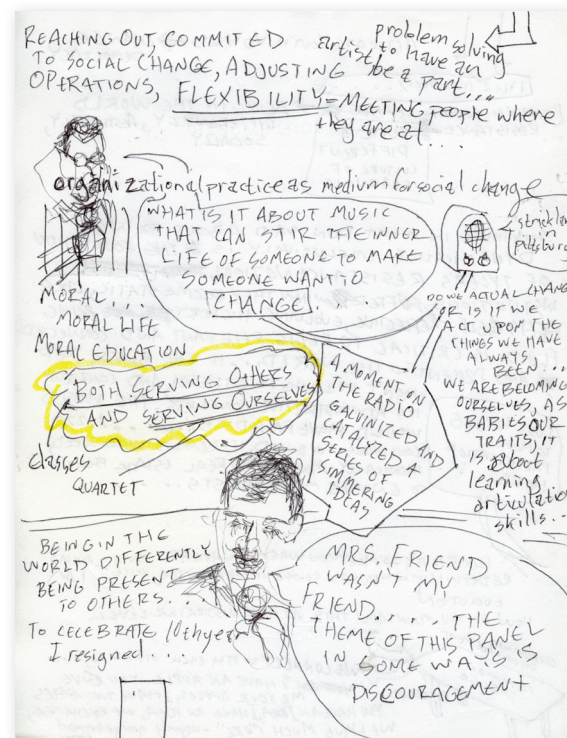 REACHING OUT, COMMITED
TO SOCIAL CHANGE, ADJUSTING
OPERATIONS, FLEXIBILITY = MEETING people where
they are at....
problem solving
artist to have an
be a part...
organizational practice as medium for social change
WHAT IS IT ABOUT MUSIC
THAT CAN STIR THE INNER
LIFE OF SOMEONE TO MAKE
SOMEONE WANT TO
CHANGE.
in
MORAL...
MORAL LIFE
MORAL EDUCATION
BOTH SERVING OTHERS
AND SERVING OURSELVES
classes
QUARTET
A MOMENT ON
THE RADIO
GALVINIZED AND
CATALYZED A
SERIES OF
SIMMERING
IDEAS
DO WE ACTUAL CHANGE
OR IS IT WE
ACT UPON THE
THINGS WE HAVE
ALWAYS
BEEN...
WE ARE BECOMING
OURSELVES, AS
BABIES OUR
TRAITS, IT
IS about
learning
articulation
skills...
BEING IN THE
WORLD DIFFERENTLY
BEING PRESENT
TO OTHERS...
TO CELEBRATE 10th year
I resigned...
MRS. FRIEND
WASN'T MY
FRIEND..... THE
THEME OF THIS PANEL
IN SOME WAYS IS
DISCOURAGEMENT